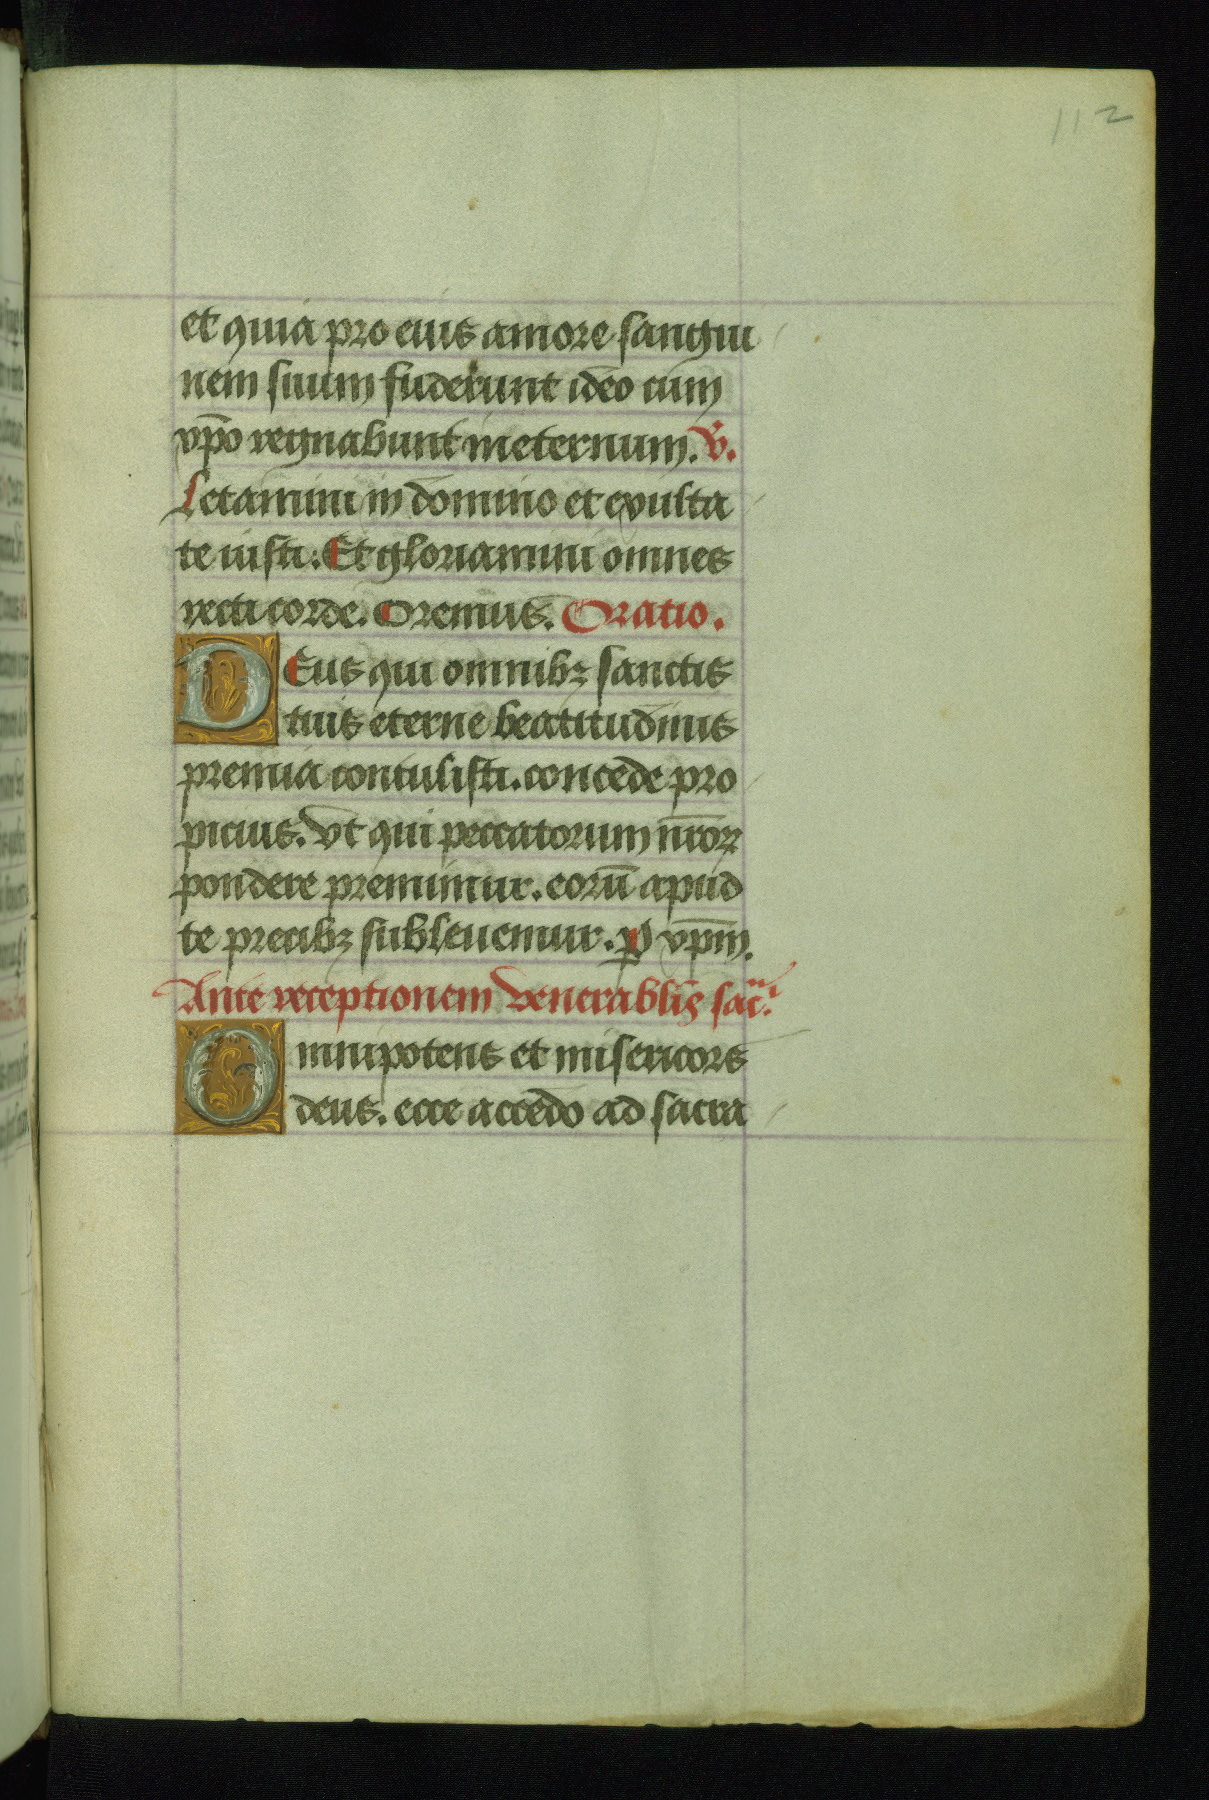 112
et quia pro eius amore sangui
nem suum fuderunt ideo cum
xp̄o regnabunt in eternum. V.
Letamini in domino et exulta
te iusti: Et gloriamini omnes
recti corde. Oremus. Oratio.
DEus qui omnibꝫ sanctis
tuis eterne beatitudinis
premia contulisti. concede pro
picius. Vt qui peccatorum nr̄oꝝ
pondere premimur. eorū apud
te precibꝫ subleuemur. P̱ xp̄m.
Ante receptionem venerabilis sacᵐⁱ.
Omnipotens et misericors
deus. ecce accedo ad sacra